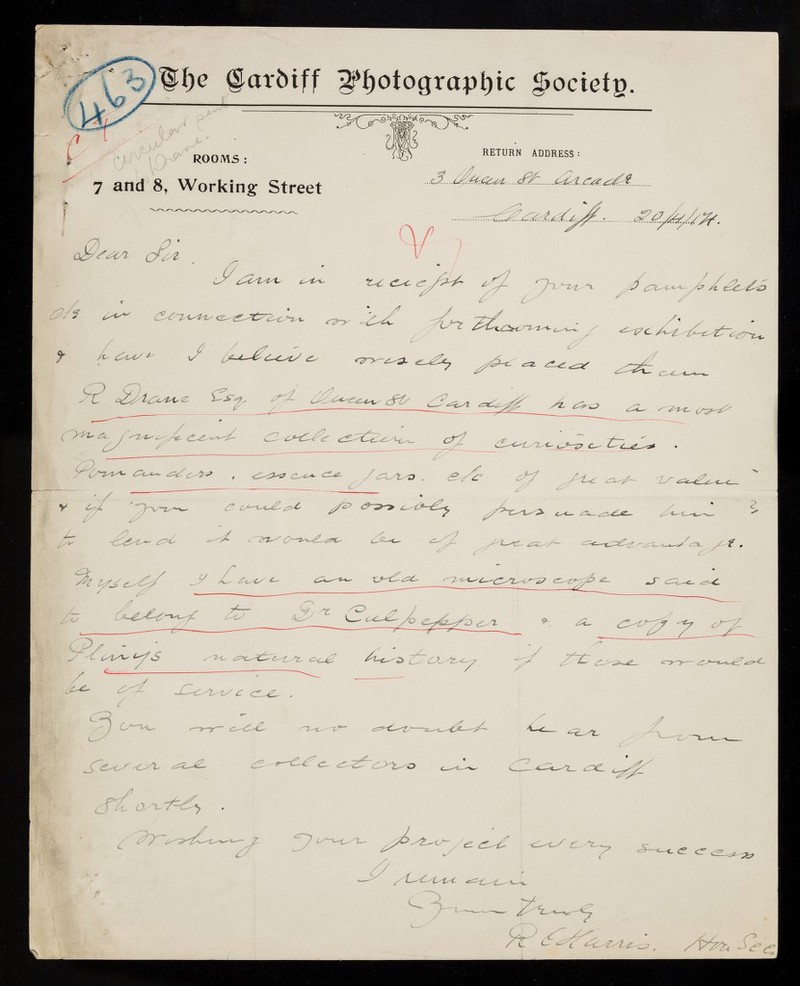 463
The Cardiff Photographic Society.
circular sent
Drane.
ROOMS:
7 and 8, Working Street
RETURN ADDRESS:
3 Queen St Arcade
Cardiff. 20/4/14.
Dear Sir.
I am in reciept of your pamphlets
etc in connection with forthcoming exhibition
& have I believe wisely placed them
R Drane Esq of Queen St Cardiff has a most
magnificent collection of curiosities.
Pomanders, essence jars. etc of great value
& if you could possibly persuade him
to lend it would be of great advantage.
Myself I have an old microscope said
to belong to Dr Culpepper & a copy of
Pliny's natural history if those would
be of service.
You will no doubt hear from
several collectors in Cardiff
Shortly.
Wishing your project every success
I remain
Yours truly
R C Harris. Hon Sec